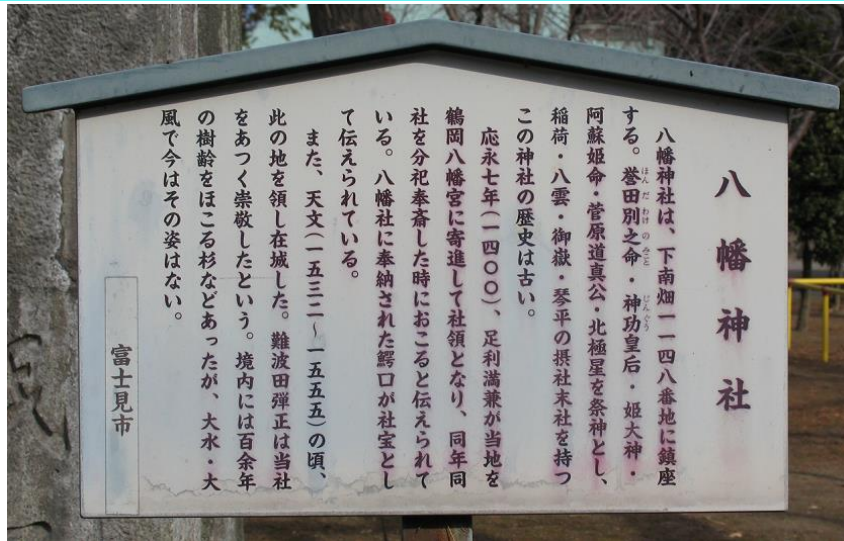 八幡神社
八幡神社は、下南畑一一四八番地に鎮座
する。誉田別之命・神功皇后・姫大神・
阿蘇姫命・菅原道真公・北極星を祭神とし、
稲荷・八雲・御嶽・琴平の摂社末社を持つ
この神社の歴史は古い。
応永七年(一四〇〇)、足利満兼が当地を
鶴岡八幡宮に寄進して社領となり、同年同
社を分祀奉斎した時におこると伝えられて
いる。八幡社に奉納された鰐口が社宝とし
て伝えられている。
また、天文(一五三二〜一五五五)の頃、
此の地を領し在城した。難波田弾正は当社
をあつく崇敬したという。境内には百余年
の樹齢をほこる杉などあったが、大水・大
風で今はその姿はない。
富士見市